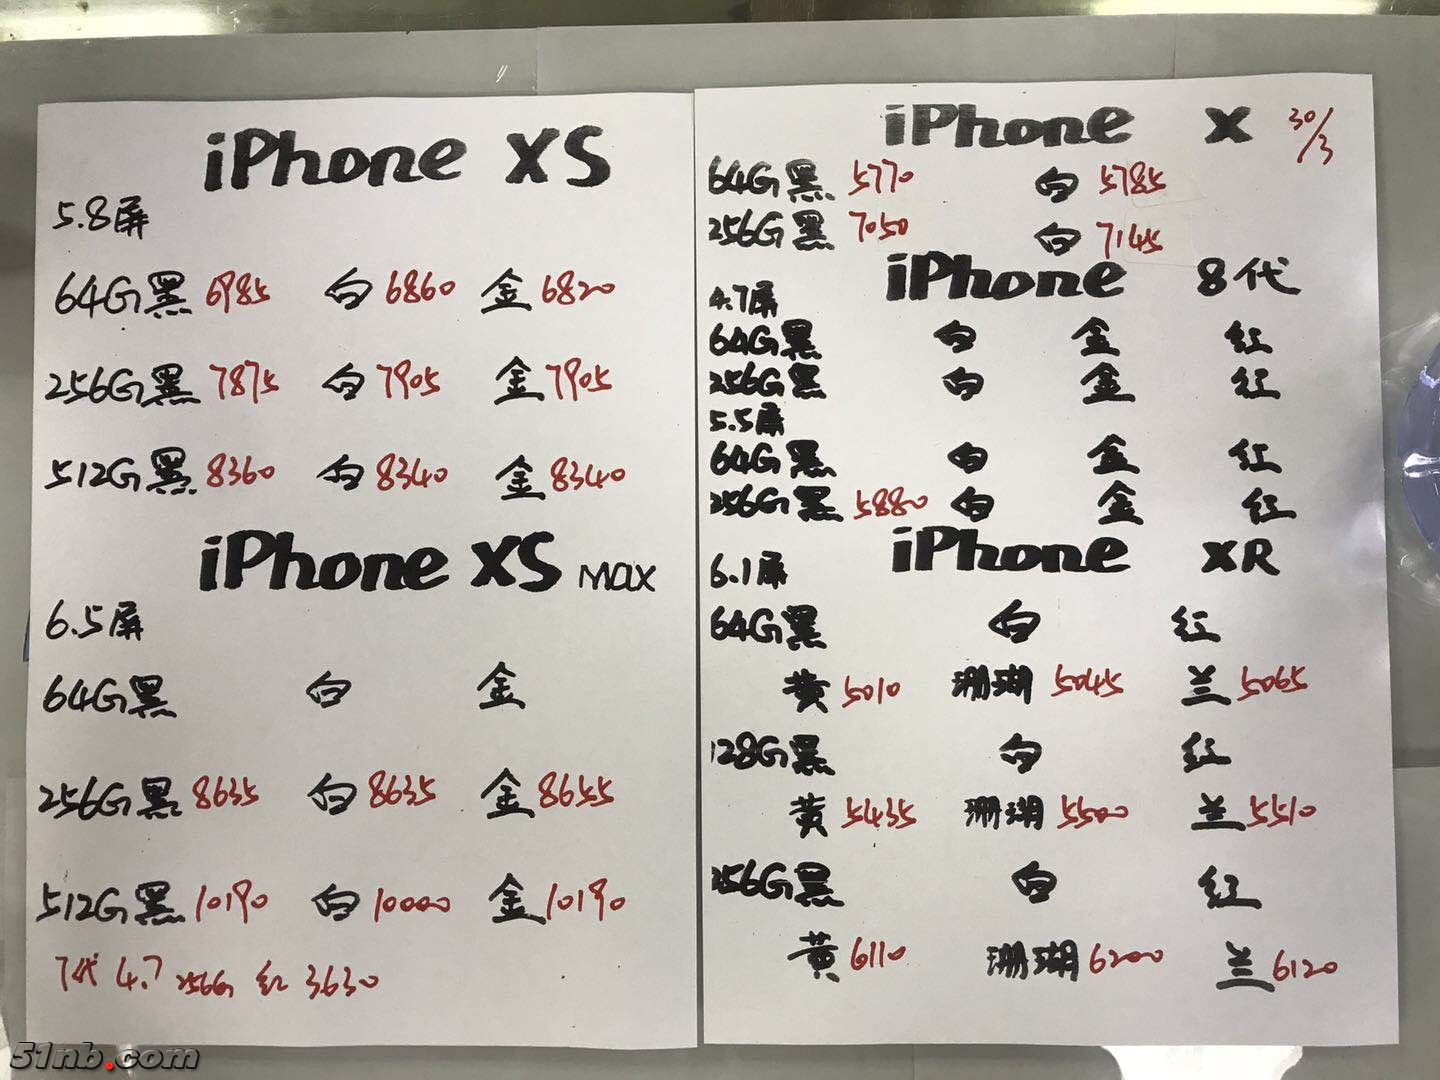 iPhone XS
5.8屏
64G黑 6985 白 6860 金 6820
256G黑 7875 白 7905 金 7905
512G黑 8360 白 8340 金 8340
iPhone XS MAX
6.5屏
64G黑 白 金
256G黑 8635 白 8635 金 8655
512G黑 10190 白 10000 金 10190
7代 4.7 256G 红 3630
iPhone X 30/3
64G黑 5770 白 5785
256G黑 7050 白 7145
iPhone 8代
4.7屏
64G黑 白 金 红
256G黑 白 金 红
5.5屏
64G黑 白 金 红
256G黑 5880 白 金 红
iPhone XR
6.1屏
64G黑 白 红
黄 5010 珊瑚 5045 兰 5065
128G黑 白 红
黄 5435 珊瑚 5500 兰 5510
256G黑 白 红
黄 6110 珊瑚 6200 兰 6120
51nb.com